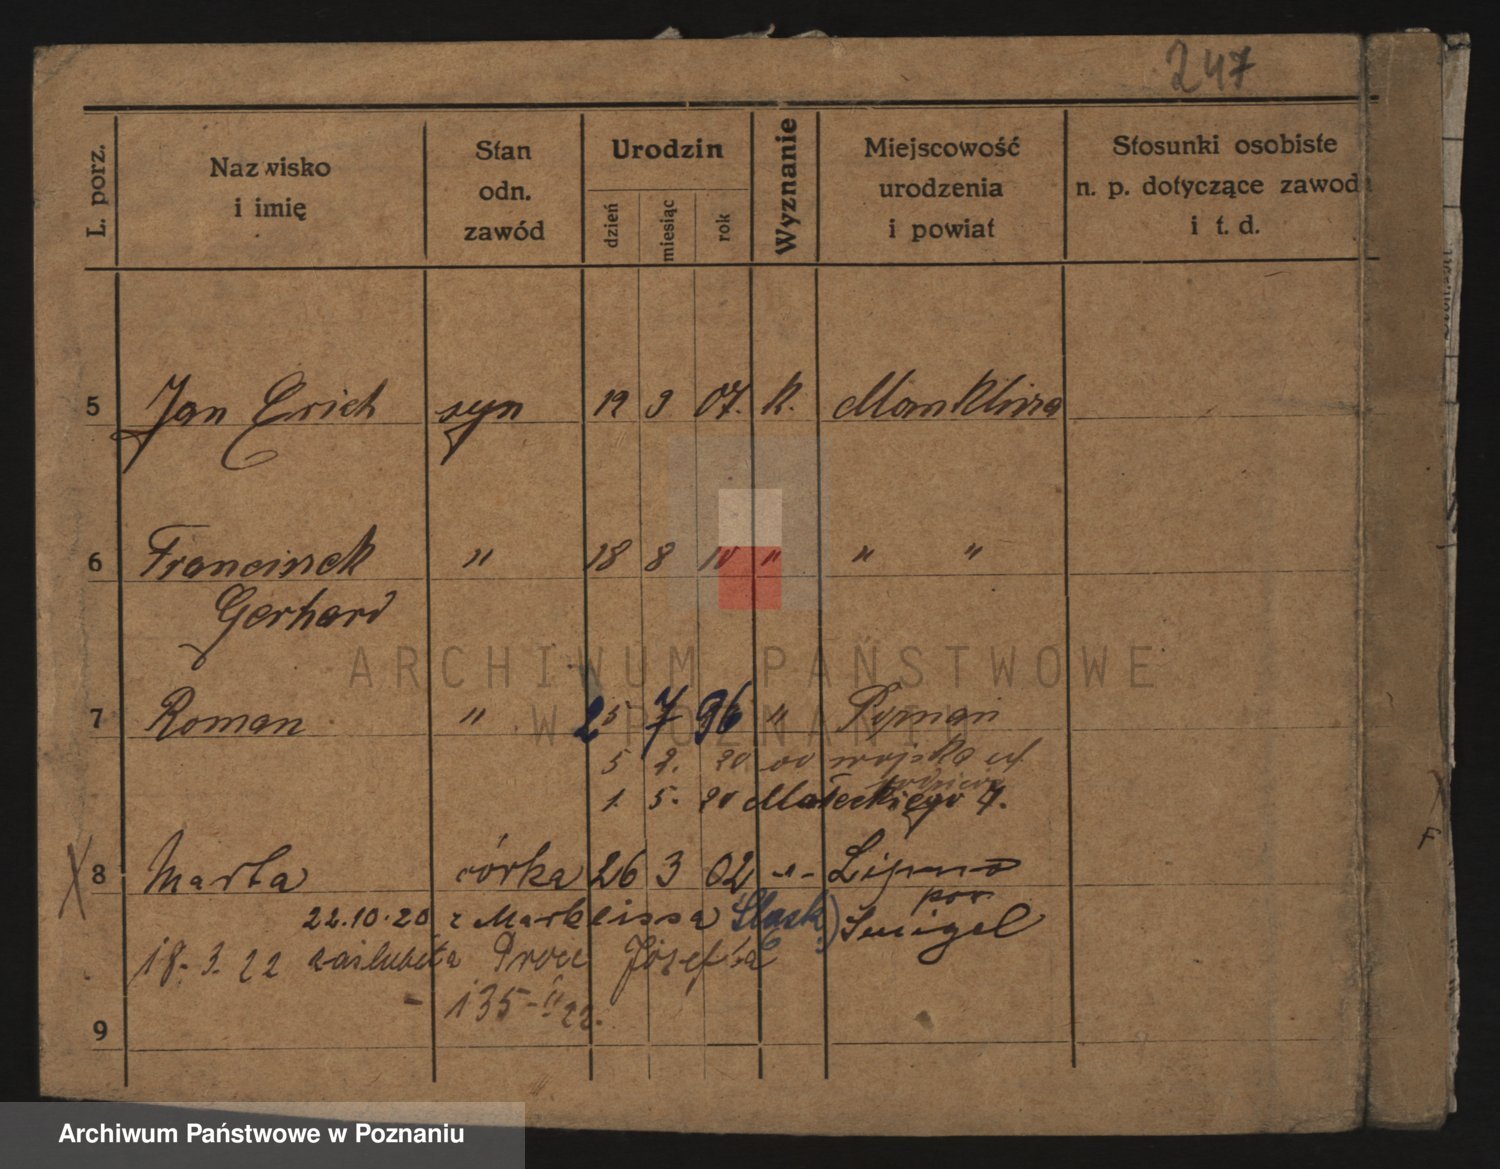 247
L. porz.
Nazwisko i imię
Stan odn. zawód
Urodzin
dzień miesiąc rok
Wyznanie
Miejscowość urodzenia i powiat
Stosunki osobiste n. p. dotyczące zawodu i t. d.
5 Jan Erich syn 19 9 07. K. Marklissa
6 Francisek " 18 8 10 " " "
Gerhard
ARCHIWUM PAŃSTWOWE
7 Roman " 25 7 96 " Poznań
W POZNANIU
5 2. 20 do wojska
rodziców
1. 5. 20 Małeckiego 7.
8 Marta córka 26 3 02 " Lipno
pow.
22.10.20 z Marklissa Śląsk) Śmigel
18.3.22 zaślubiła Józefa
135 22.
9
F
Archiwum Państwowe w Poznaniu